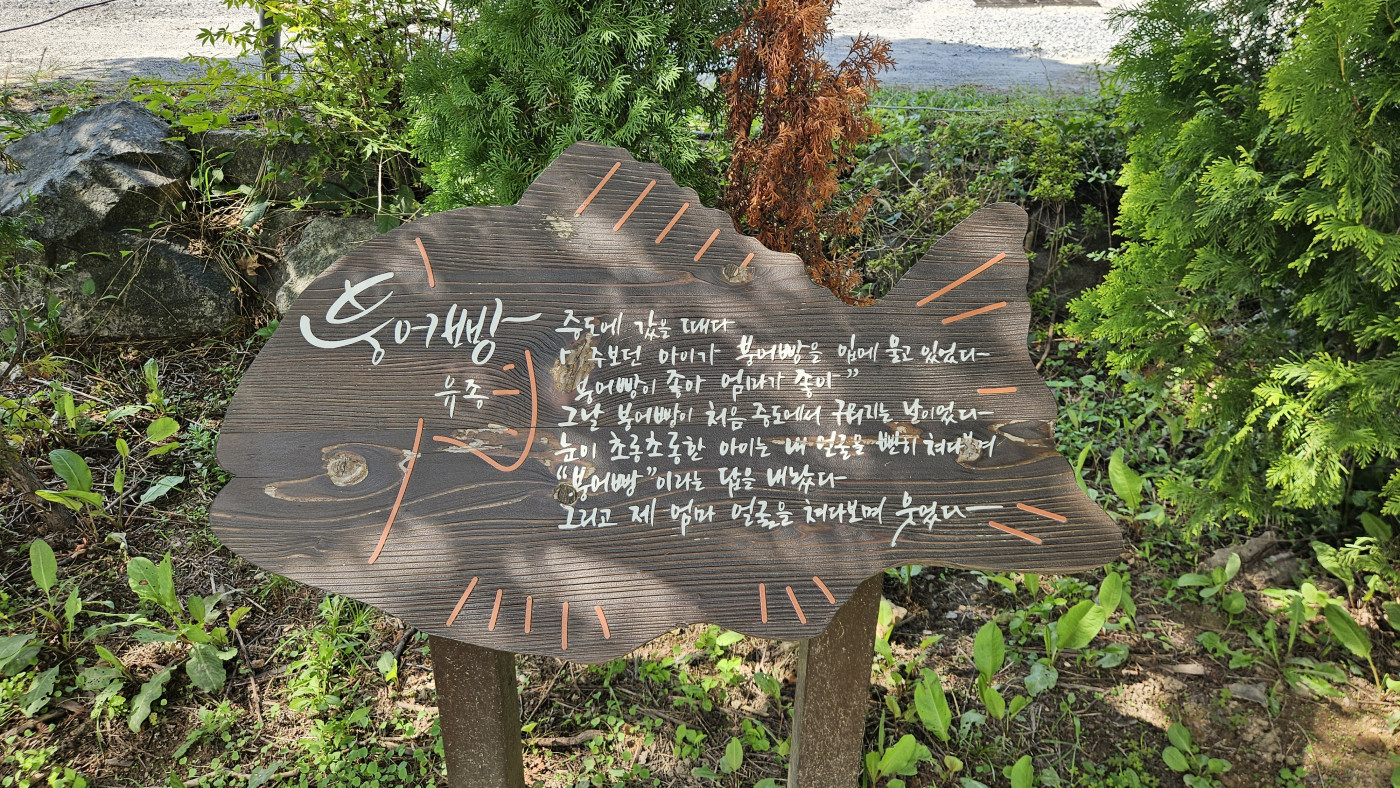 붕어빵
유종
증도에 갔을 때다
마주보던 아이가 붕어빵을 입에 물고 있었다
붕어빵이 좋아 엄마가 좋아”
그날 붕어빵이 처음 증도에서 구워지는 날이었다
눈이 초롱초롱한 아이는 내 얼굴을 빤히 쳐다보며
“붕어빵”이라는 답을 내놨다
그리고 제 엄마 얼굴을 쳐다보며 웃었다